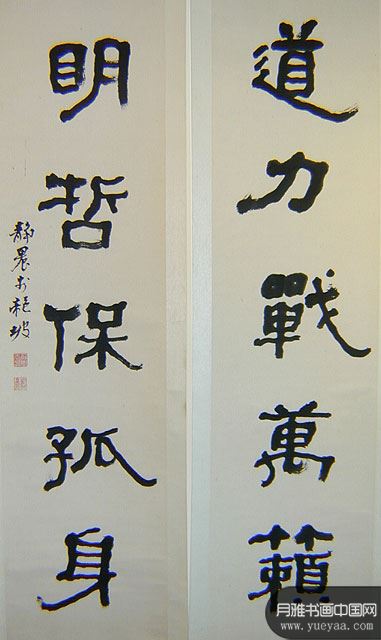 道力戰萬籟
明哲保孤身
靜農於龍坡
月雅书画中国网
www.yueyaa.com